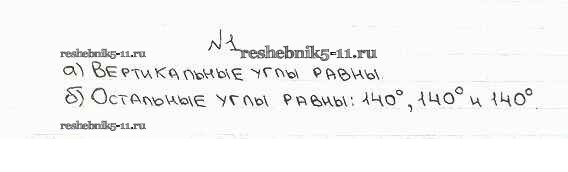 №1
reshebnik5-11.ru reshebnik5-11.ru
а) Вертикальные углы равны
б) Остальные углы равны: 140°, 140° и 140°.
reshebnik5-11.ru